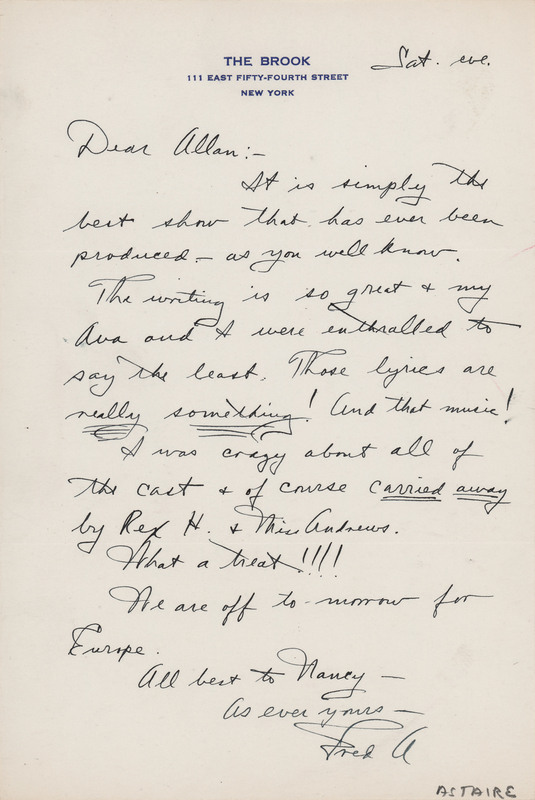 THE BROOK
111 EAST FIFTY-FOURTH STREET
NEW YORK
Sat. eve.
Dear Allan:—
It is simply the
best show that has ever been
produced — as you well know.
The writing is so great & my
Ava and I were enthralled to
say the least. Those lyrics are
really something! And that music!
I was crazy about all of
the cast & of course carried away
by Rex H. & Miss Andrews.
What a treat!!!!
We are off to-morrow for
Europe.
All best to Nancy —
As ever yours —
Fred A
ASTAIRE